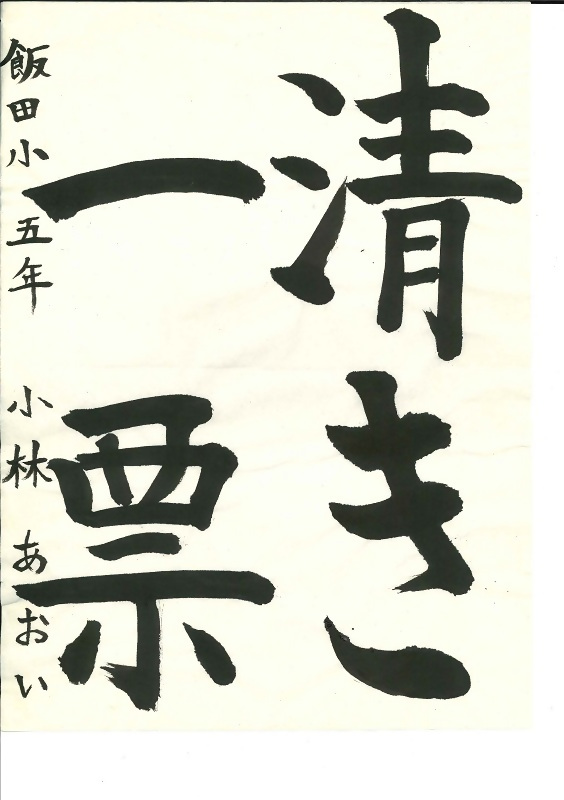 清き
一票
飯田小 五年 小林 あおい